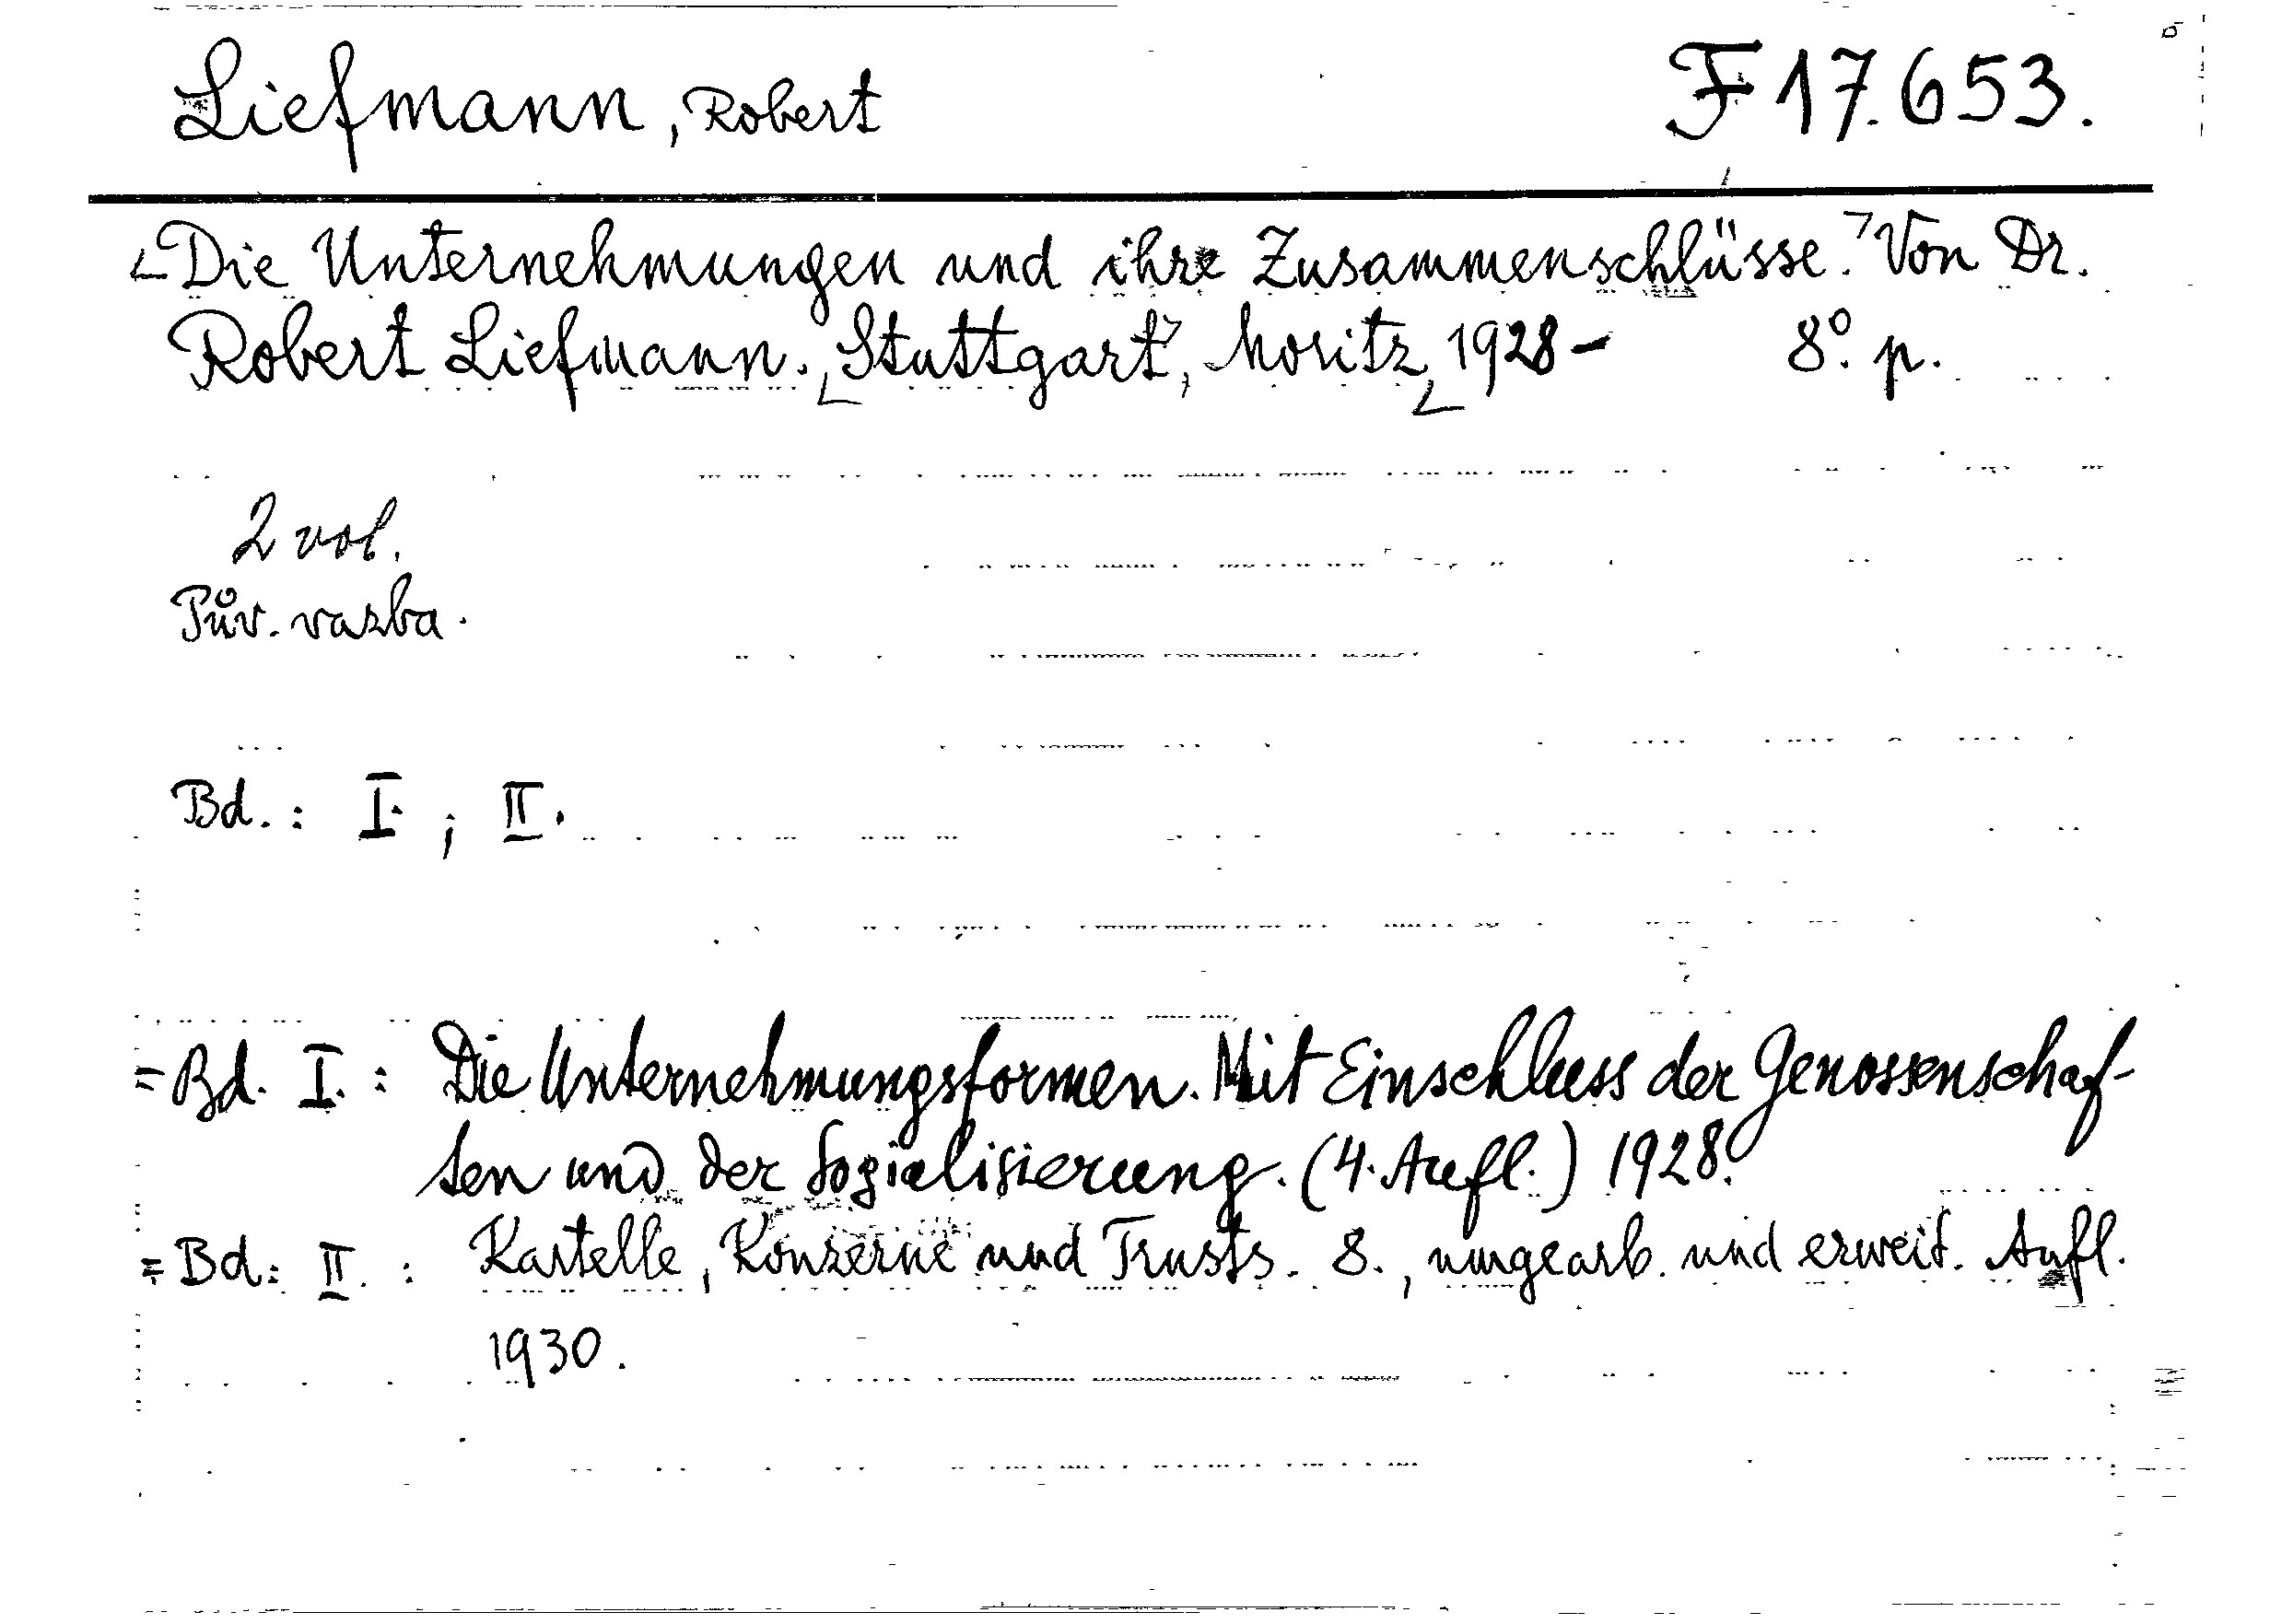 Liefmann, Robert F 17.653.
Die Unternehmungen und ihre Zusammenschlüsse. Von Dr.
Robert Liefmann. Stuttgart, Moritz, 1928- 8°. p.
2 vol.
Pův. vazba.
Bd.: I. ; II.
= Bd. I. : Die Unternehmungsformen. Mit Einschluss der Genossenschaf-
ten und der Sozialisierung. (4. Aufl.) 1928.
= Bd. II. : Kartelle, Konzerne und Trusts. 8., umgearb. und erweit. Aufl.
1930.